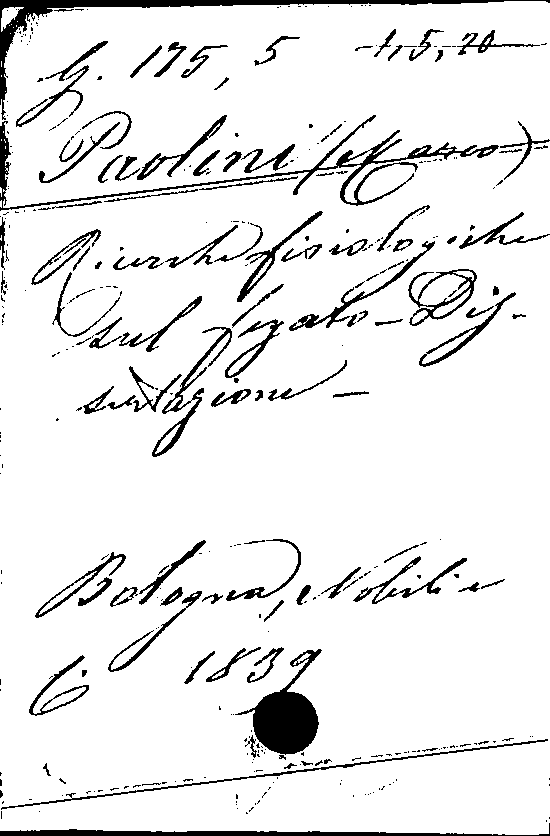 G. 175, 5 1, 5, 20
Paolini (Marco)
Ricerche fisiologiche
sul fegato - Dis-
sertazione -
Bologna, Nobili e
C. 1839